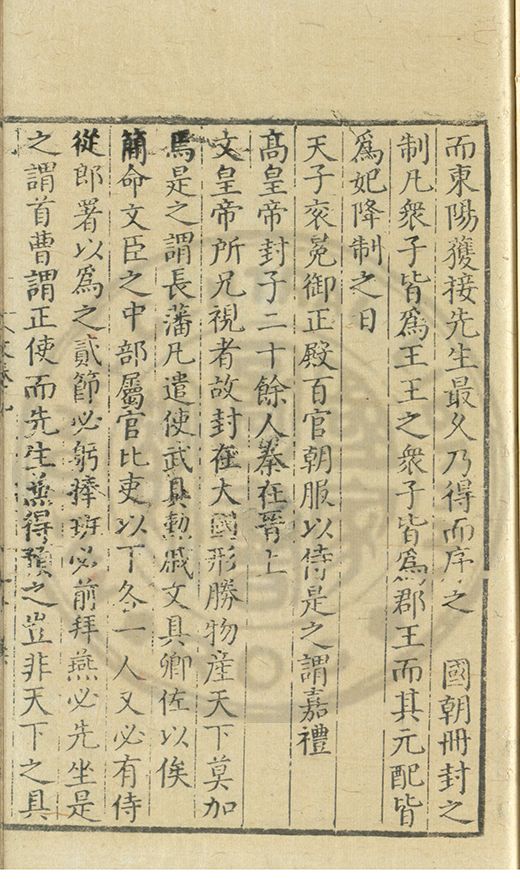 而東陽獲接先生最久乃得而序之　國朝冊封之
制凡衆子皆爲王王之衆子皆爲郡王而其元配皆
爲妃降制之日
天子衮冕御正殿百官朝服以侍是之謂嘉禮
高皇帝封子二十餘人秦在晉上
文皇帝所兄視者故封在大國形勝物産天下莫加
焉是之謂長藩凡遣使武具勲戚文具卿佐以俟
簡命文臣之中部屬官比吏以下各一人又必有侍
從郎署以爲之貳節必躬捧班必前拜燕必先坐是
之謂首曹謂正使而先生兼得預之豈非天下之具